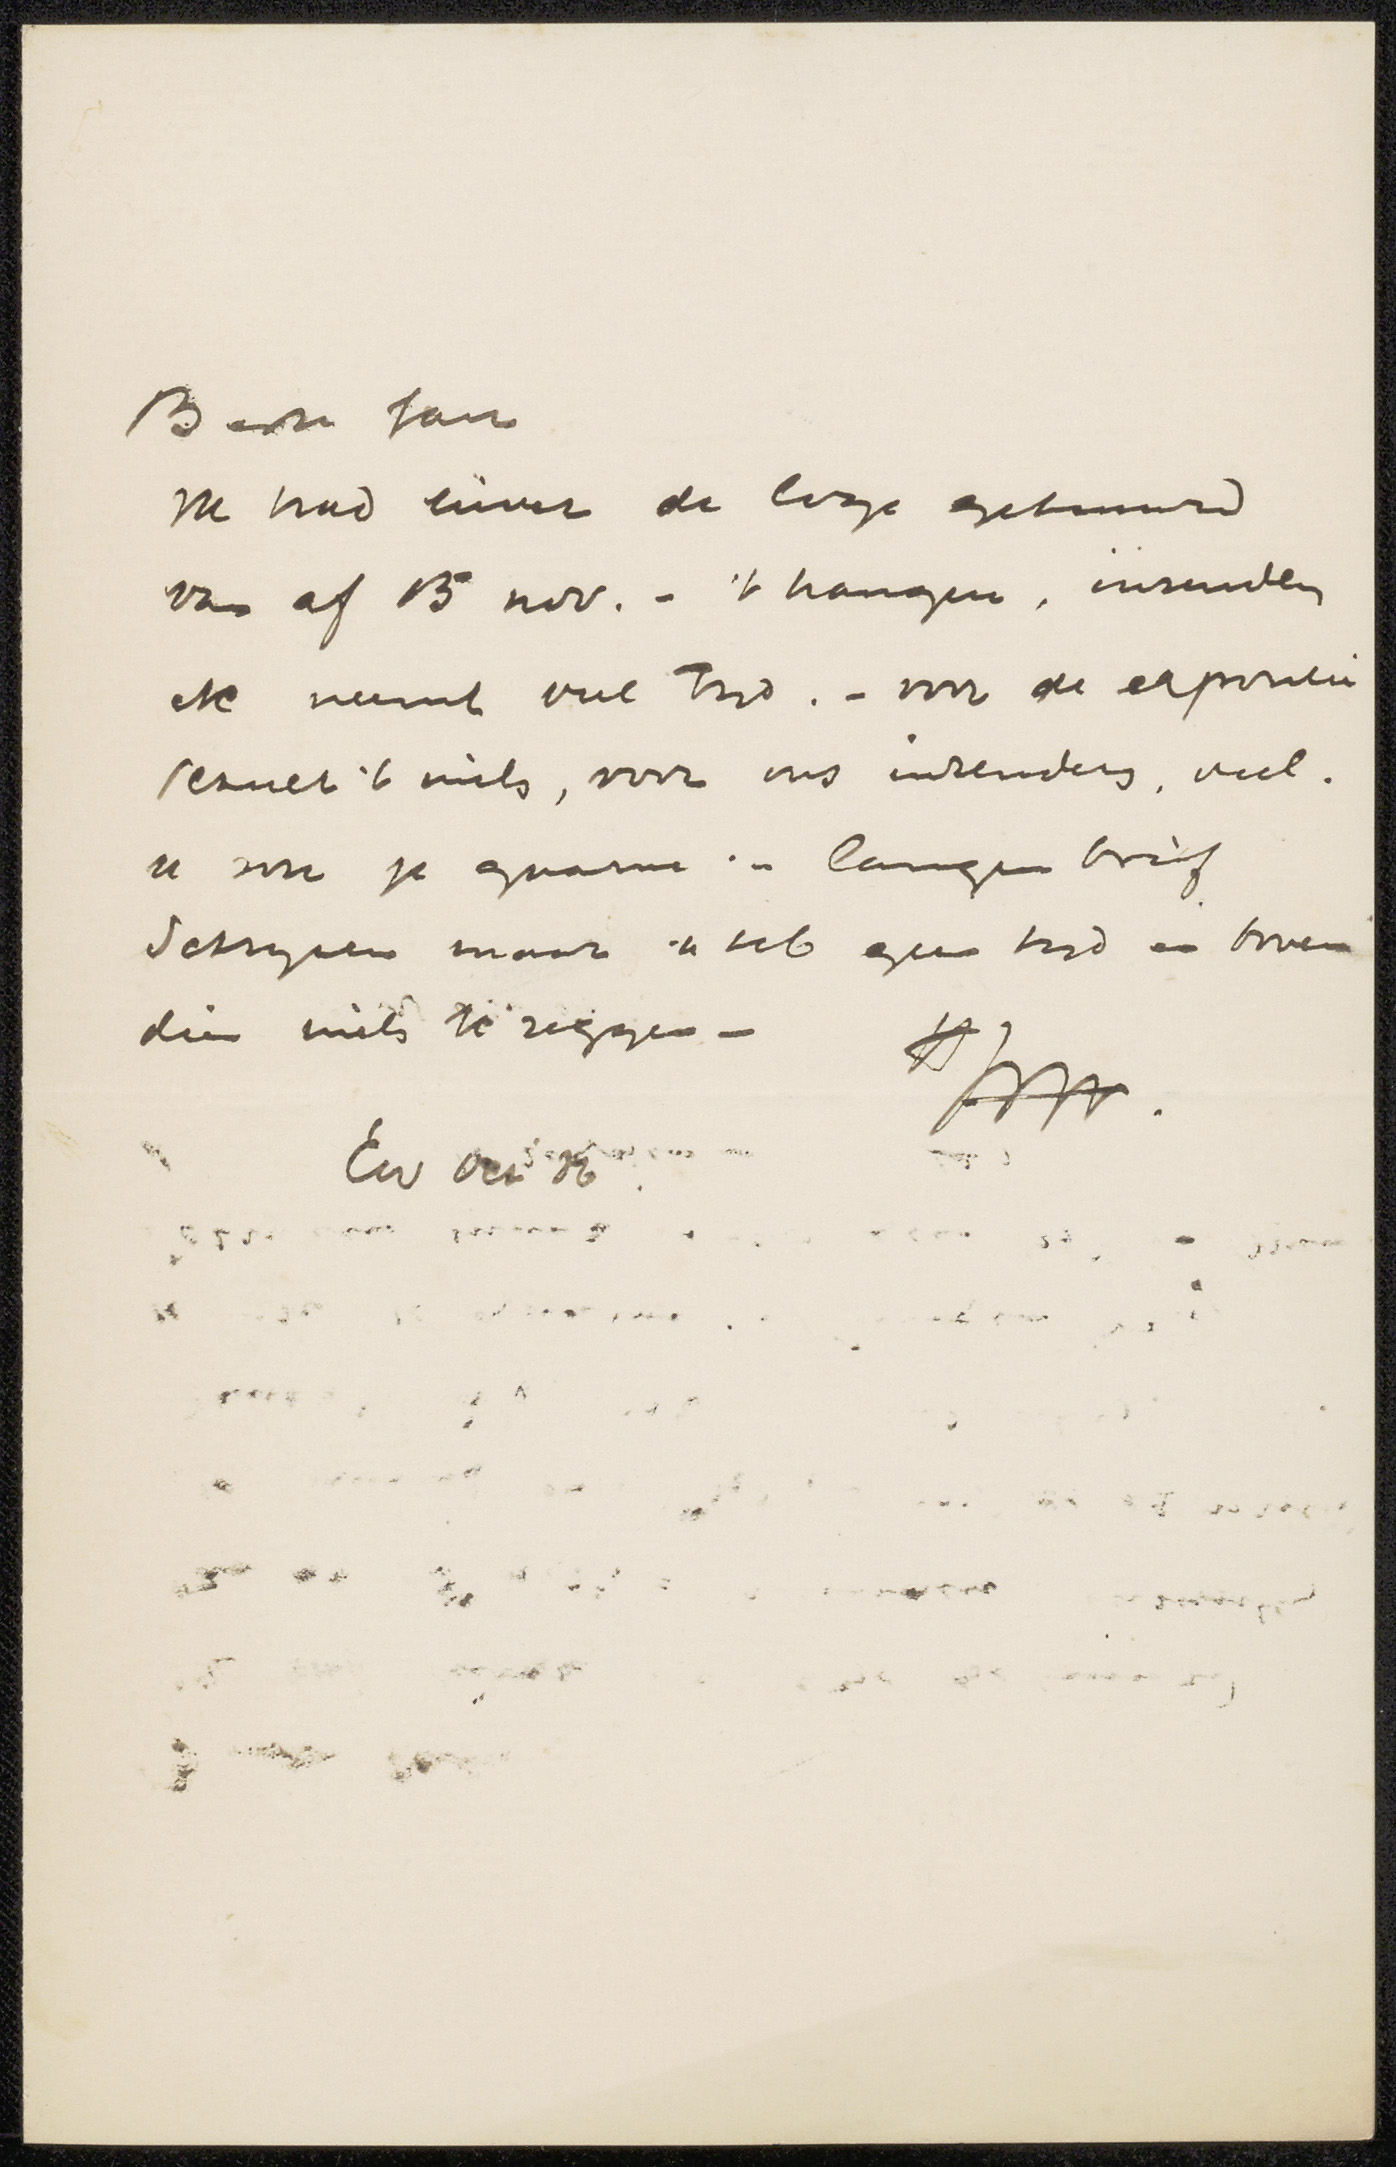 Beste Jan
Ik had liever de loge gehuurd
van af 15 nov. - 't hangen, inzenden
etc neemt veel tijd. - voor de expositie
scheelt 't niets, voor ons inzenders, veel.
ik zou je gaarne 'n langen brief
schrijven maar ik heb geen tijd en boven
dien niets te zeggen -
Oct